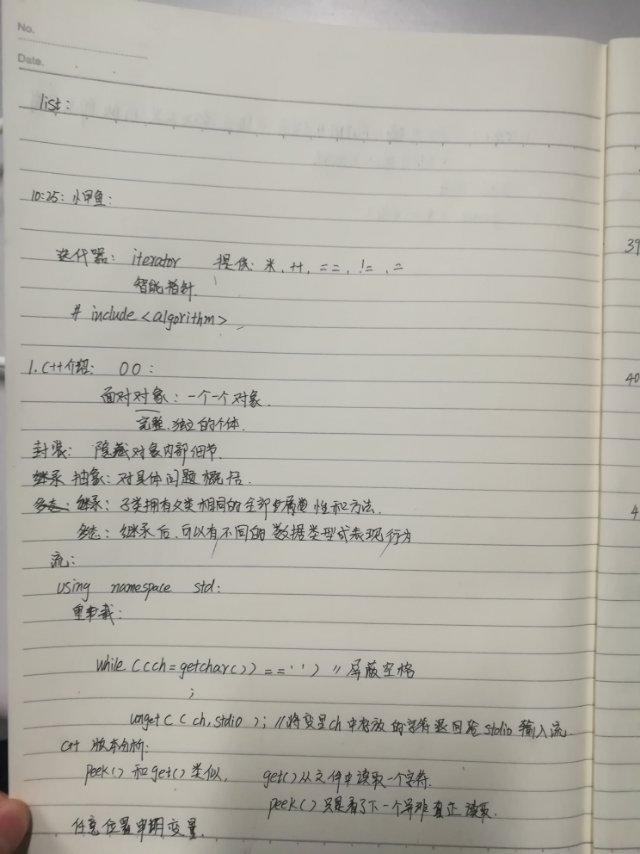 No.
Date.
list:
10:25: 小甲鱼:
39
迭代器: iterator 提供: *, ++, ==, !=, =
智能指针.
# include <algorithm>
1. C++介绍: OO:
40
面对对象: 一个一个对象.
完整, 独立的个体.
封装: 隐藏对象内部细节.
继承 抽象: 对具体问题概括.
多态: 继承: 子类拥有父类相同的全部 性和方法.
4
多态: 继承后, 可以有不同的数据类型或表现行为
流:
using namespace std:
重载:
while ((ch=getchar()) ==' ') // 屏蔽空格
;
ungetc (ch, stdio); //将变量ch中存放的字符退回给stdio输入流.
C++ 版本分析:
peek() 和 get() 类似, get()从文件中读取一个字符.
peek()只是看了下一个 并非真正读取.
任意位置申明变量.